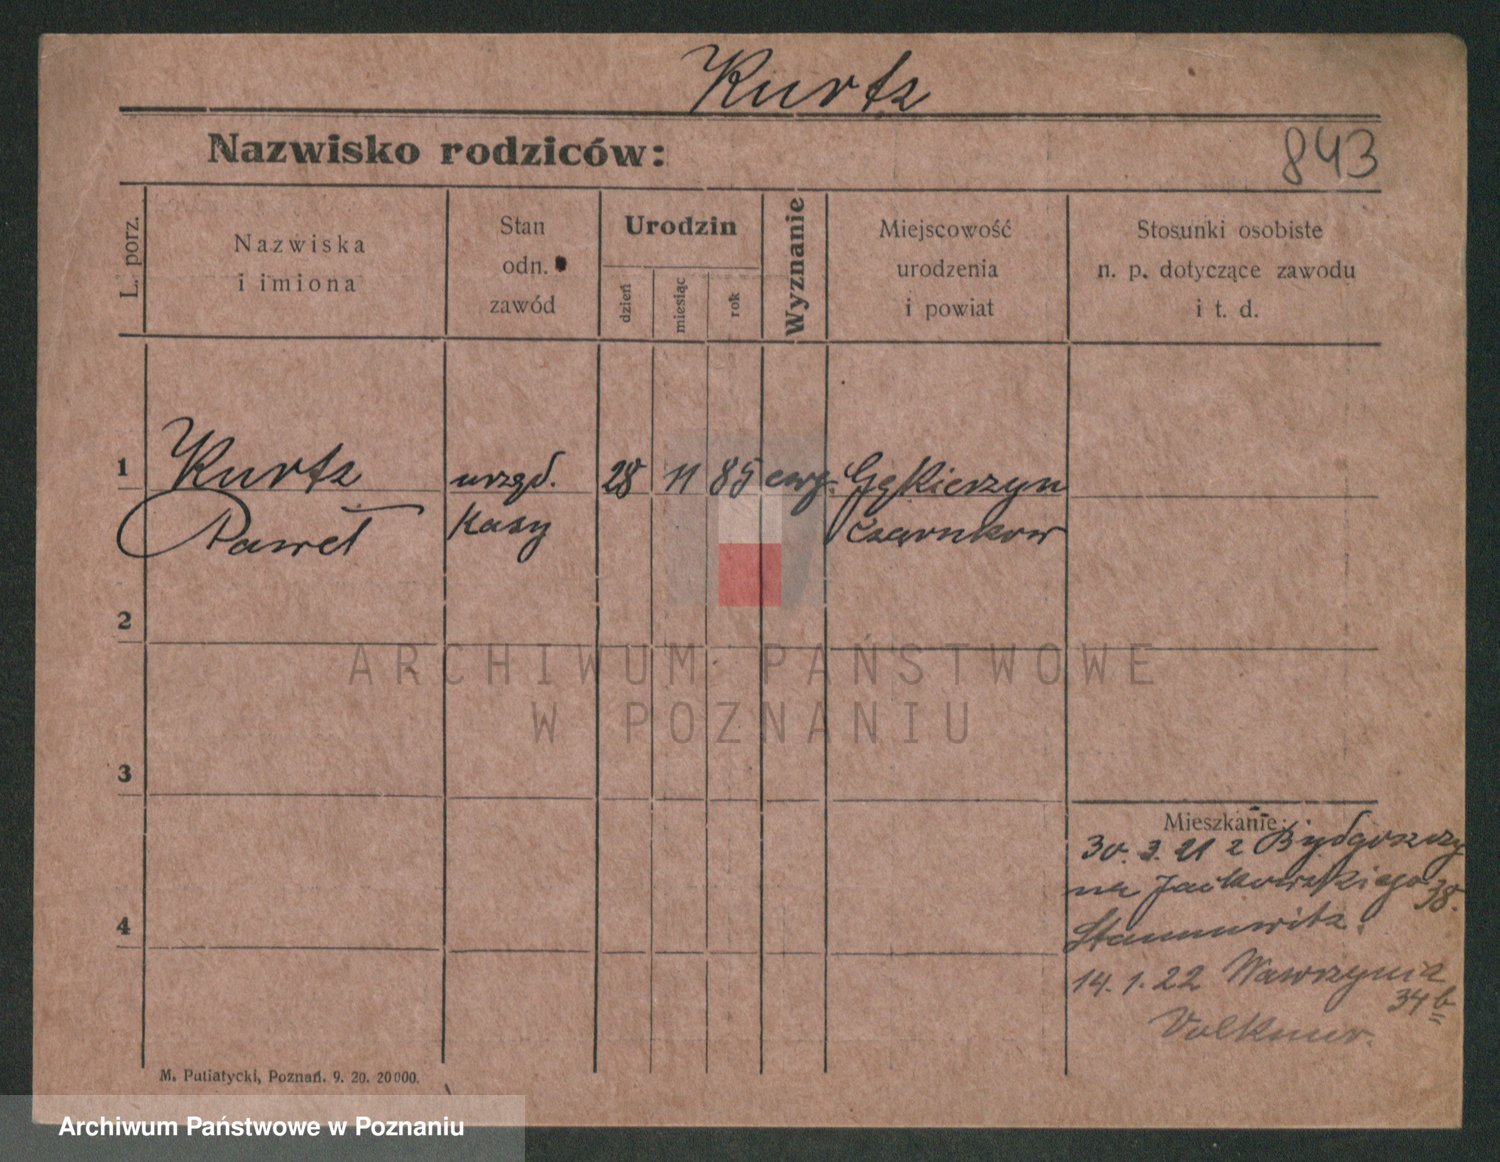 Kurtz
Nazwisko rodziców:
843
L. porz.
Nazwiska
i imiona
Stan
odn.
zawód
Urodzin
dzień
miesiąc
rok
Wyznanie
Miejscowość
urodzenia
i powiat
Stosunki osobiste
n. p. dotyczące zawodu
i t. d.
1
Kurtz
Paweł
urzęd.
Kasy
28
11
85
ewg.
Gękierzyn
Czarnkow
2
3
4
Mieszkanie:
30. 3. 21 z Bydgoszczy
na Jackowskiego 38.
14. 1. 22 Wawrzynia
34 b
Volkmer.
M. Putiatycki, Poznań. 9. 20. 20000.
ARCHIWUM PAŃSTWOWE
W POZNANIU
Archiwum Państwowe w Poznaniu